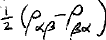 ½ (ραβ - ρβα)